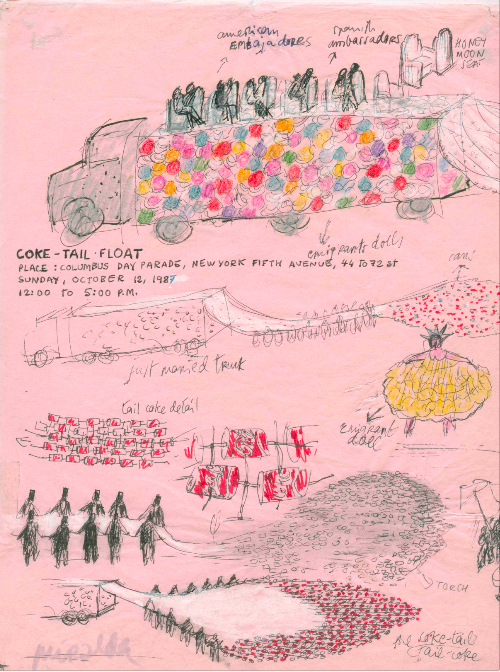 american
EMBAjADORES
spanish
ambassadores
HONEY
MOON
SEAT
emigrants dolls
COKE - TAIL · FLOAT
PLACE : COLUMBUS DAY PARADE, NEW YORK FIFTH AVENUE, 44 TO 72 ST
SUNDAY, OCTOBER 12, 1987
12:00 TO 5:00 P.M.
just married truck
tail coke detail
Emigrant
doll
TORCH
coke-tail
Tail-coke